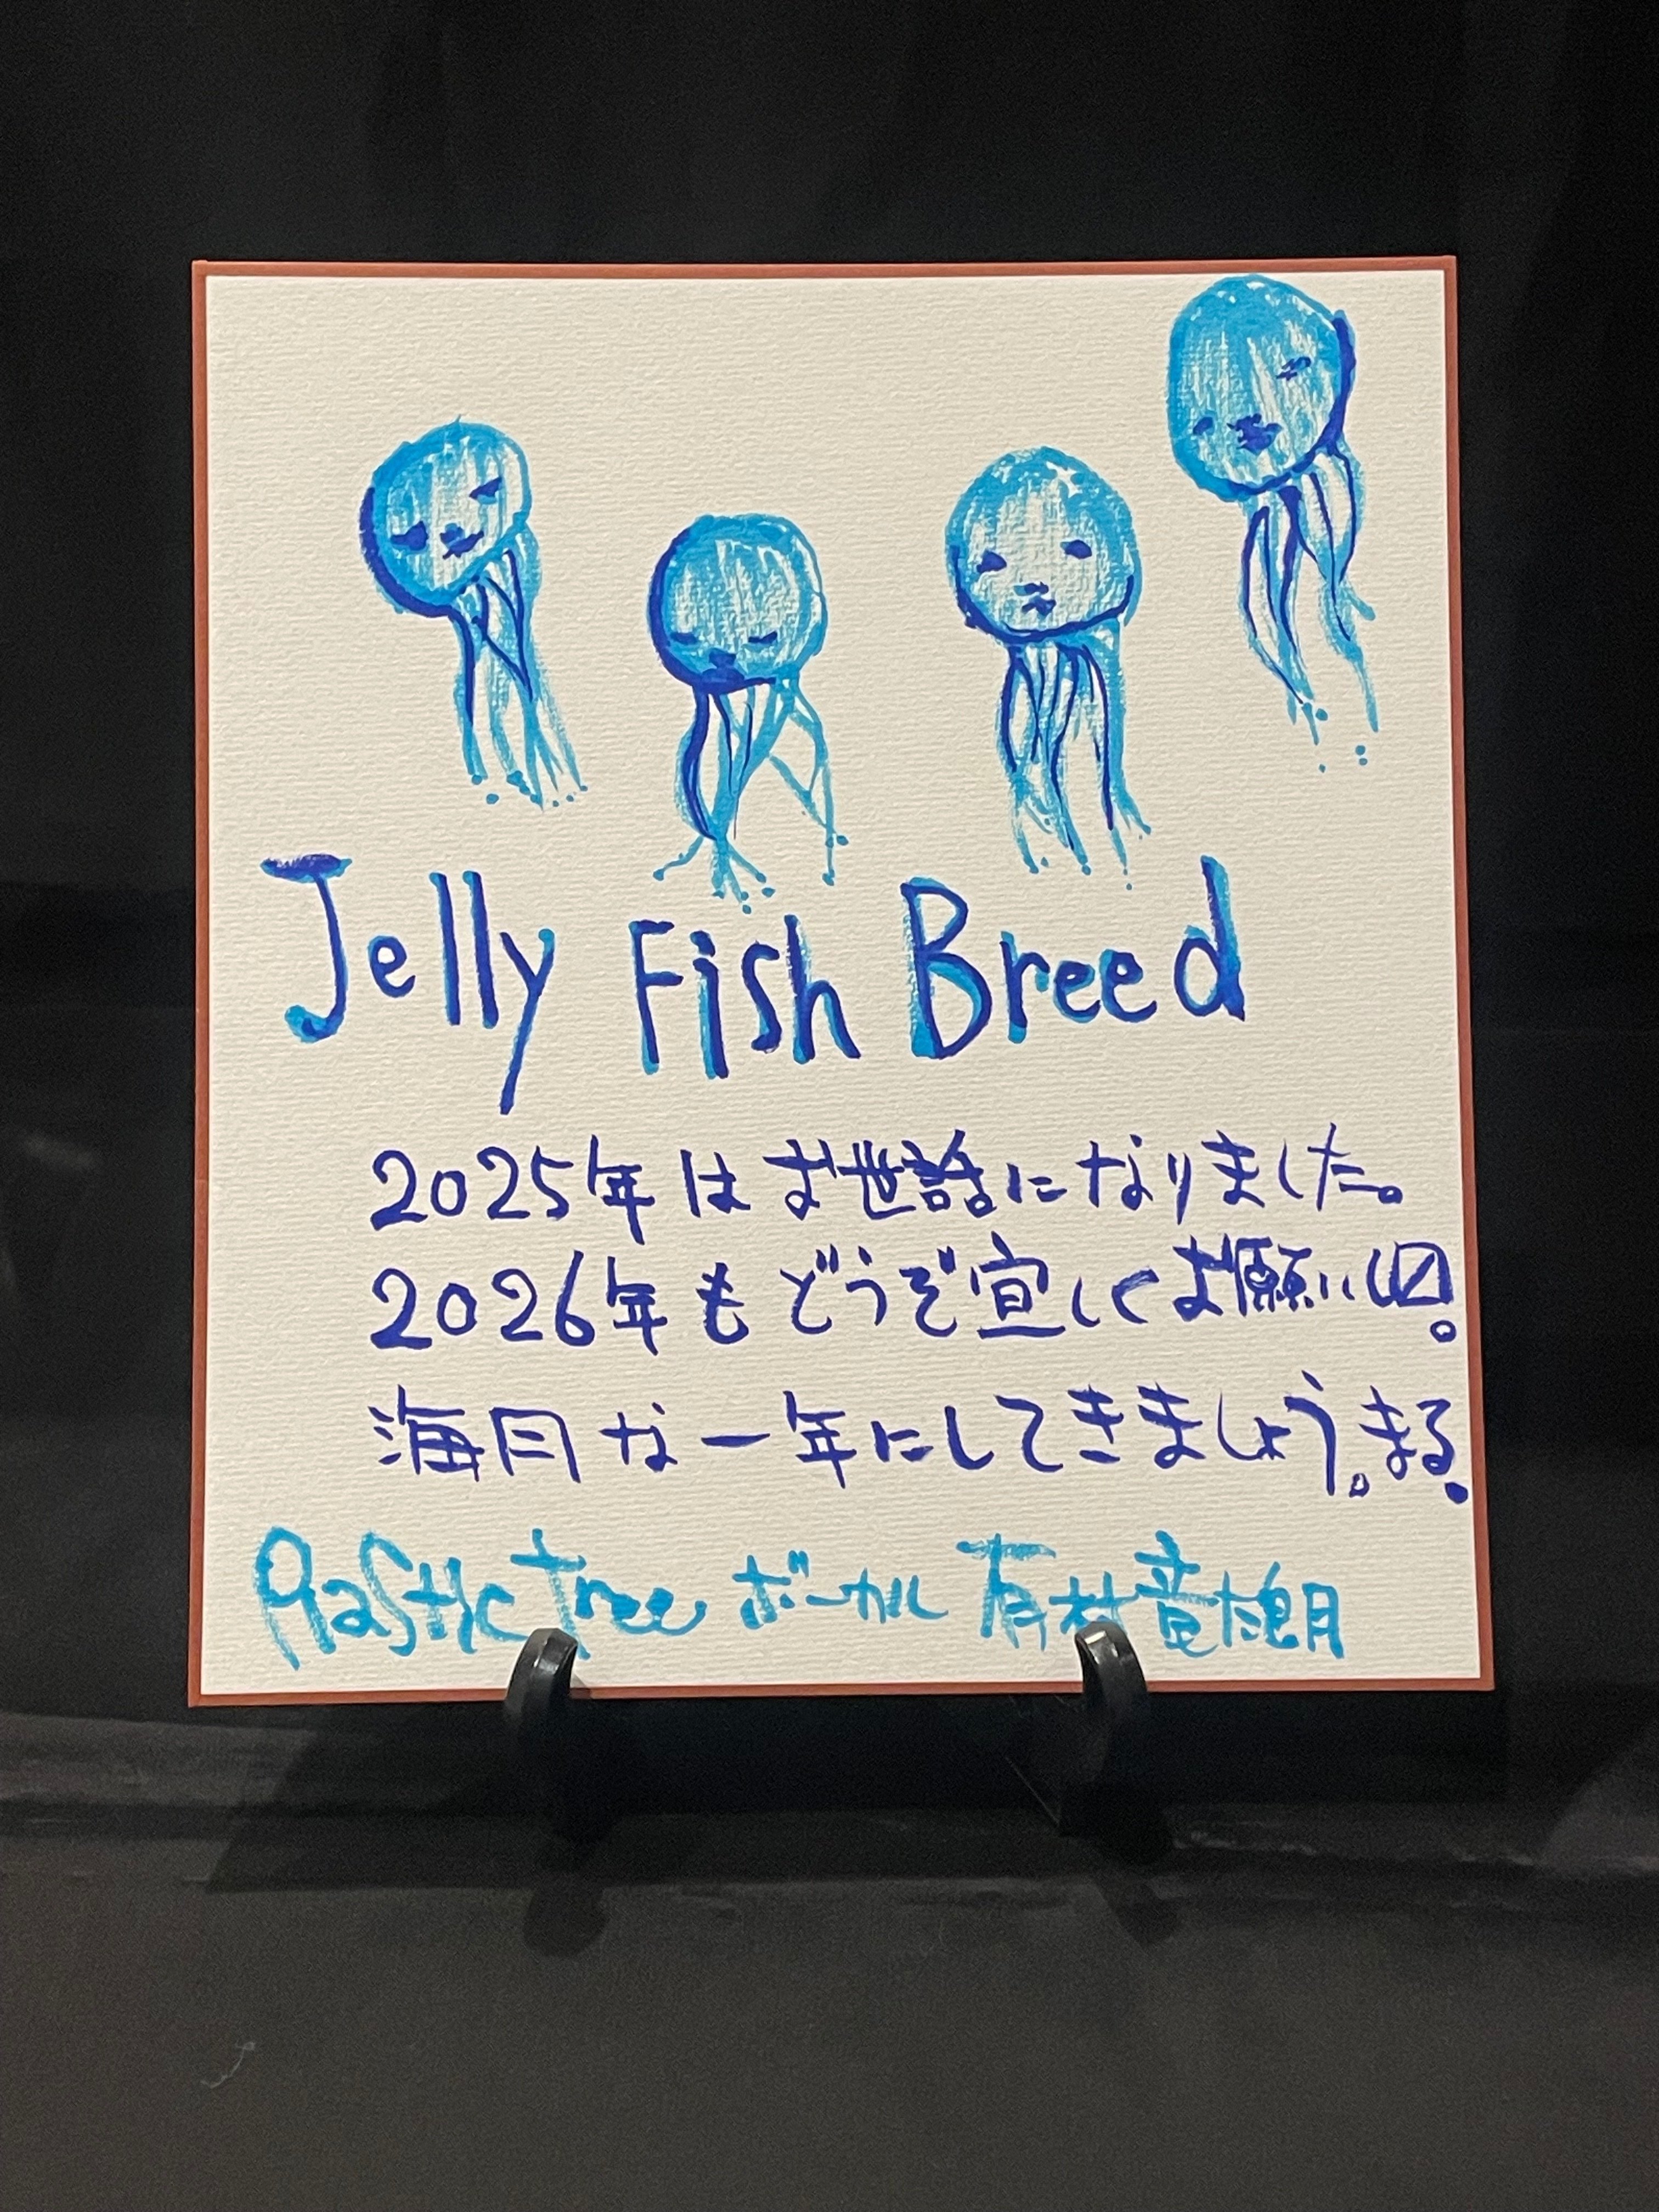 Jelly Fish Breed
2025年はお世話になりました。
2026年もどうぞ宜しくお願いし〼。
海月な一年にしてきましょう。まる.
Plastic Tree ボーカル 有村竜太朗